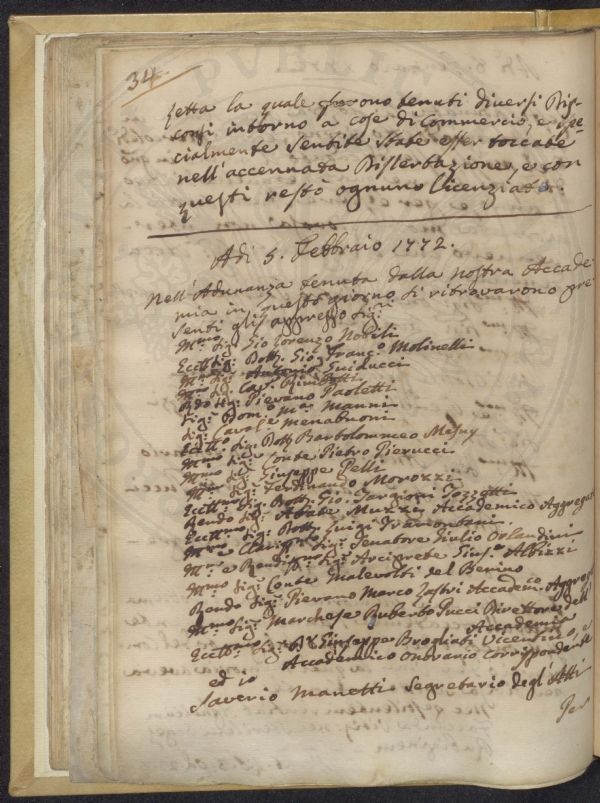 34.
zetta la quale furono tenuti diversi Dis-
corsi intorno a cose di Commercio, e spe-
cialmente sentite state esser toccate
nell'accennada Dissertazione, e con
questi restò ognuno licenziato.
Adi 5. Febbraio 1772.
Nell'Adunanza tenuta dalla nostra Accade-
mia in questo giorno si ritrovarono pre-
senti gli appresso Sigri
Mmo Sigr Gio Lorenzo Nobili
Eccmo Sigr Dottr Gio: Franco Molinelli
Mro Sigr Antonio Guiducci
Mro Sigr Capo Rimbotti
Rdo Sigr Pievano Paoletti
Sigr Domo Ma Manni
Sigr Cavalre Menabuoni
Ecctmo Sigr Dottr Bartolommeo Mesny
Mmo Sigr Conte Pietro Pierucci
Mmo Sigr Giuseppe Pelli
Mro Sigr Ferdinando Morozzi
Ecctmo Sigr Dottr Gio: Targioni Tozzetti
Rendo Sigr Abate Muzzi Accademico Aggregato
Ecctmo Sigr Dottr Luigi Tramontani.
Mmo e Clarissmo Sigr Senatore Giulio Orlandini
Mmo e Rendissmo Sigr Arciprete Giuse Albizzi
Mmo Sigr Conte Malevolti del Benino
Rendo Sigr Pievano Marco Lastri Accademo Aggrego
Mmo Sigr Marchese Ruberto Pucci Direttore dell'
Accademia
Ecctmo Sigr Dr Giuseppe Brogliati Vicentino, e
Accademico Onorario Corrispondente
ed io
Saverio Manetti Segretario degl'Atti